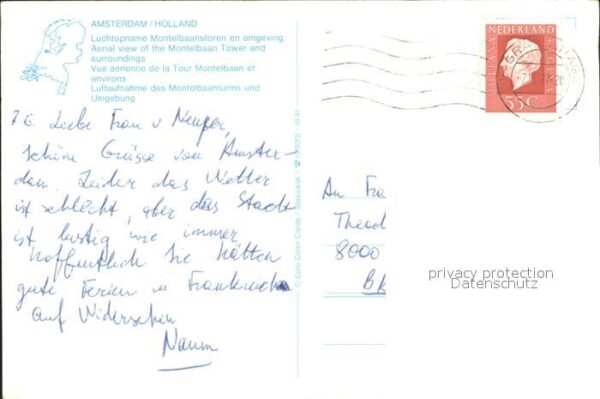 AMSTERDAM / HOLLAND
Luchtopname Montelbaanstoren en omgeving
Aerial view of the Montelbaan Tower and
surroundings
Vue aerienne de la Tour Montelbaan et
environs
Luftaufnahme des Montelbaanturms und
Umgebung
Liebe Frau v
schöne Grüsse von Amster-
dam. Leider das Wetter
ist schlecht, aber das Stadt
ist lustig wie immer
hoffentlich Sie hätten
gute Ferien in Frankreich
auf Widersehen
Naum
© Euro Color Cards
NEDERLAND
55c
An Fra
Theod
8000
privacy protection
Datenschutz